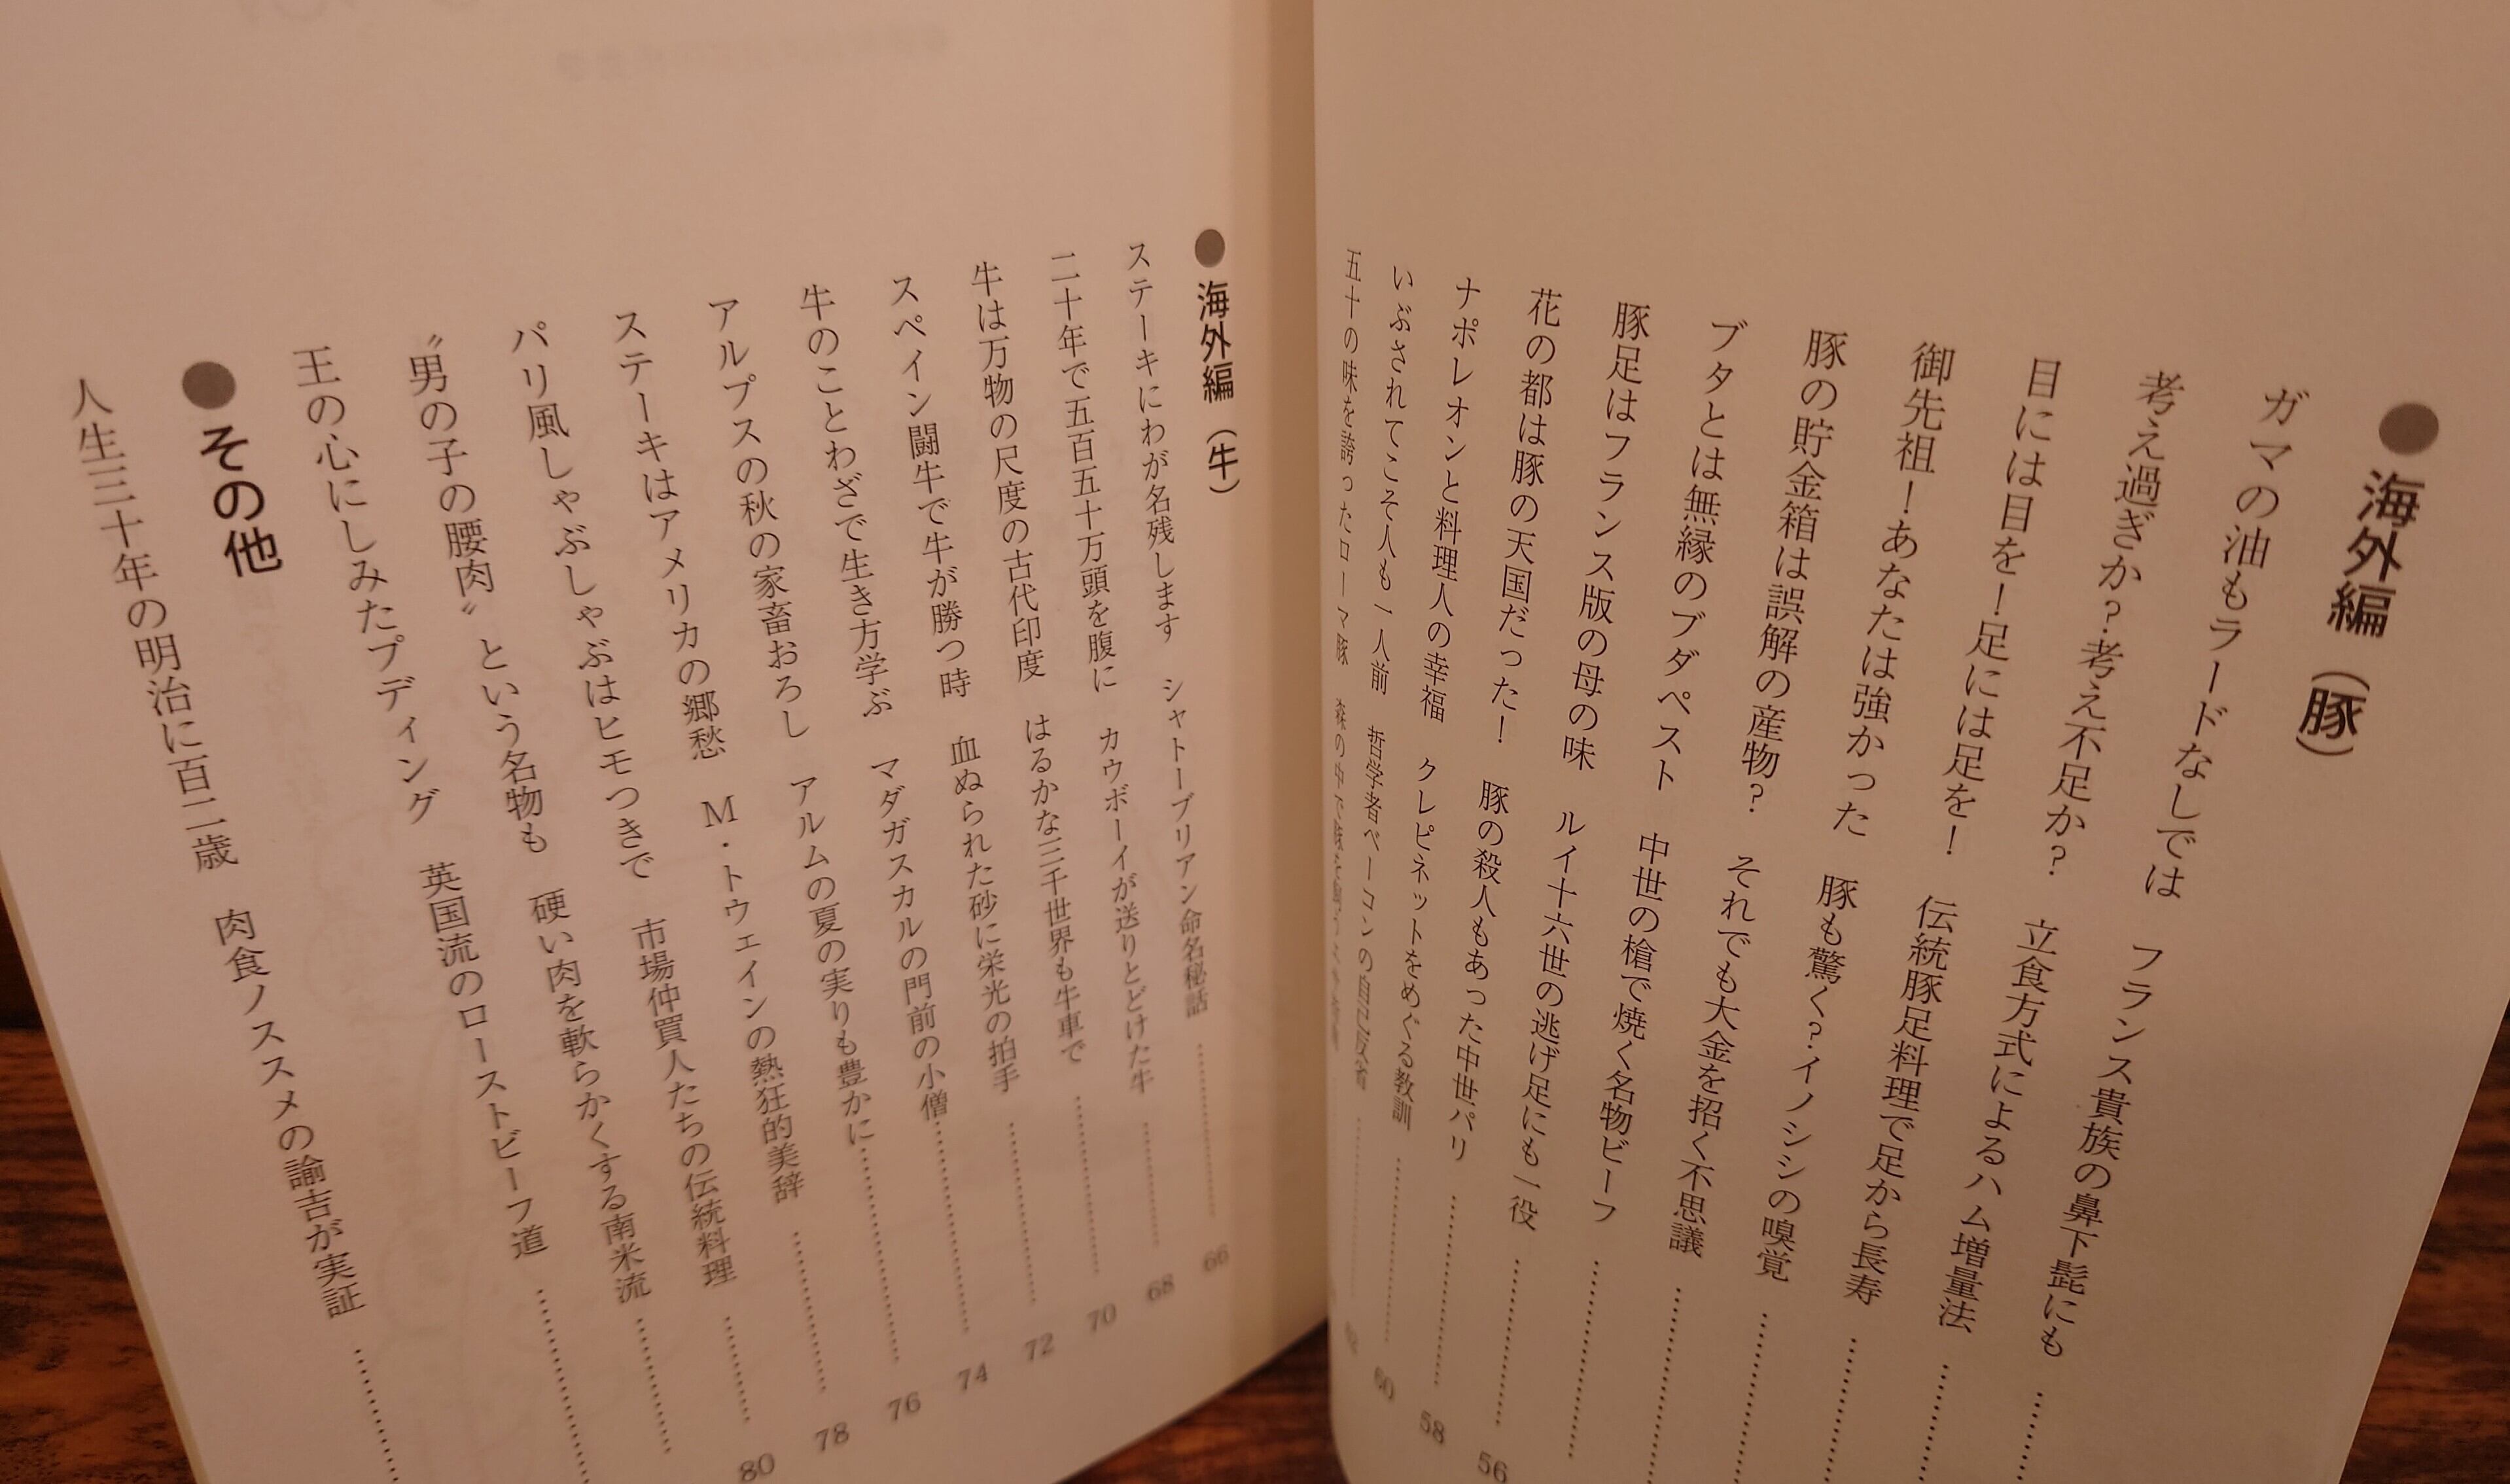 ●海外編（豚）
ガマの油もラードなしでは　フランス貴族の鼻下髭にも……
考え過ぎか？考え不足か？　立食方式によるハム増量法……
目には目を！足には足を！　伝統豚足料理で足から長寿……
御先祖！あなたは強かった　豚も驚く？イノシシの嗅覚……
豚の貯金箱は誤解の産物？　それでも大金を招く不思議……
ブタとは無縁のブダペスト　中世の槍で焼く名物ビーフ……
豚足はフランス版の母の味　ルイ十六世の逃げ足にも一役……
花の都は豚の天国だった！　豚の殺人もあった中世パリ……56
ナポレオンと料理人の幸福　クレピネットをめぐる教訓……58
いぶされてこそ人も一人前　哲学者ベーコンの自己反省……60
五十の味を誇ったローマ豚
●海外編（牛）
ステーキにわが名残します　シャトーブリアン命名秘話……66
二十年で五百五十万頭を腹に　カウボーイが送りとどけた牛……68
牛は万物の尺度の古代印度　はるかな三千世界も牛車で……70
スペイン闘牛で牛が勝つ時　血ぬられた砂に栄光の拍手……72
牛のことわざで生き方学ぶ　マダガスカルの門前の小僧……74
アルプスの秋の家畜おろし　アルムの夏の実りも豊かに……76
ステーキはアメリカの郷愁　M・トウェインの熱狂的美辞……78
パリ風しゃぶしゃぶはヒモつきで　市場仲買人たちの伝統料理……80
〝男の子の腰肉〟という名物も　硬い肉を軟らかくする南米流……
王の心にしみたプディング　英国流のローストビーフ道……
●その他
人生三十年の明治に百二歳　肉食ノススメの諭吉が実証……